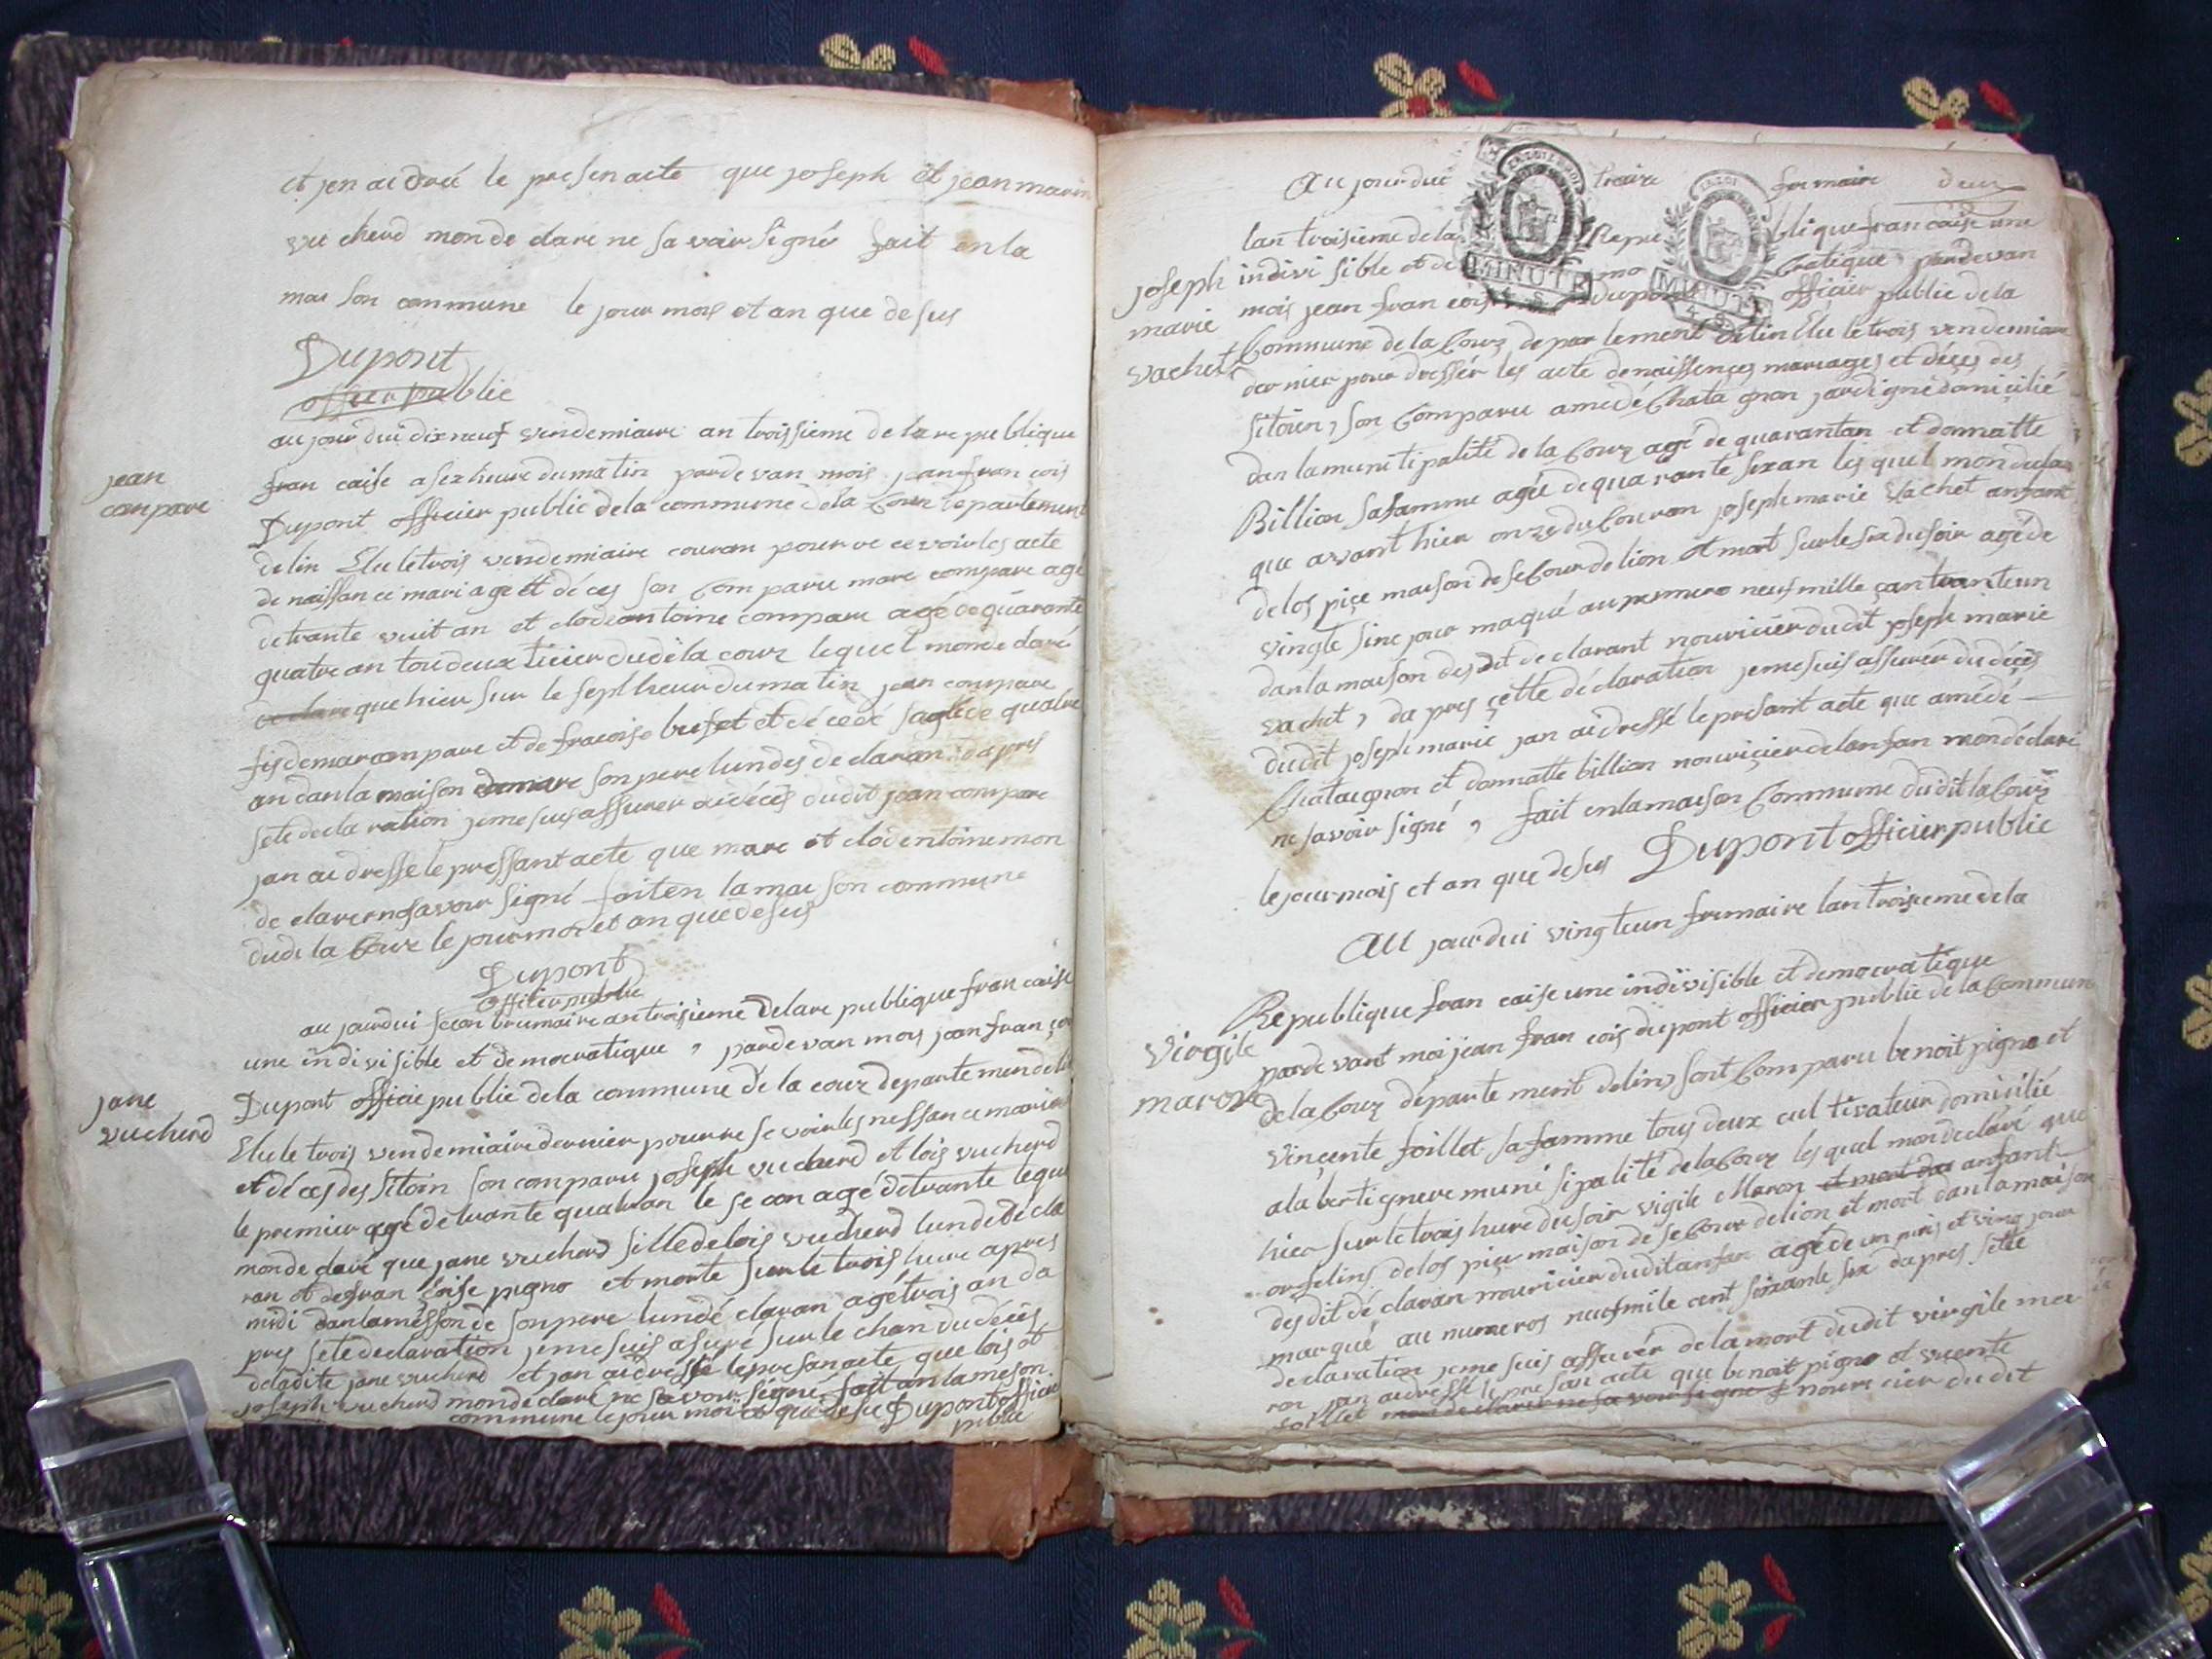 et jen ai dréé le presen acte que joseph et jean marin
vu cherd mon de clare ne sa voir signér fait en la
mai son commune le jour mois et an que desus
Dupont
officier publie
au jour dui dix neuf vendemiaire an troissieme de la re publique
jean
compare
fran caise a sez heure du matin par de van mois jean fran cois
Dupont officier public de la commune de la Couz departement
de lin Elu le trois vendemiaire couran pour re ce voir les acte
de naissan ce mari age et dé ces son Com paru marc compare agé
de trante vuit an et clode antoine compare agé de quarante
quatre an tou deux ticier du de la couz lequel mon de claré
que hier sur le sept heur du matin jean compare
fis de marcompare et de fracoise bufet et dé cedé sagé de quatre
an dan la maison de marc son pere lun des de claran dapres
sete decla ration jeme suis assurer du décés du dit jean compare
jan ai dresse le pressant acte que marc et clod entoine mon
de clarer ne savoir signé fait en la mai son commune
dudi la Couz le jour moi et an que desus
Dupont
officier publie
au jourdui secon brumaire an troisieme de lare publique fran caise
une indivisible et democratique , pardevan mois jean fran çois
jane
vucherd
Dupont officie publie de la commune de la couz departemen de lin
Elu le trois vendemiaire dernier pour re se voir les nessan ce mariage
et dé ces des sitoin son comparu joseph vucherd et lois vucherd
le premier agé de trante quatran le se con agé de trante lequel
mon de claré que jane vucherd fille de lois vucherd lun de de cla
ran et de fran çoise pigno et morte sur le trois hure apres
midi dan la messon de son pere lun dé claran agé trois an da
pres sete declaration jeme suis asuré sur le chan du décés
de ladite jane vucherd et jan ai dressé le presan acte que lois et
joseph vucherd mon de claré ne sa voir signé fait an la meson
commune le jour moi et que desu Dupont officie
publie
Au jour dui traize frimaire deux
lan troisieme de la Repu blique francaise une
joseph
marie
vachet
indivi sible et de mo cratique , pardevan
mois jean fran cois Dupont officier public de la
Commune de la Couz depar lement de lin Elu le trois vendemiaire
der nier pour dressér les acte de naissences mariages et déçes des
sitoien, son Comparu amedé Chata gnon jardignié domicilié
dan la muni tipalité de la Couz agé de quarantan et donnatte
Billion sa famme agée de qua rante sixan les quel mon declaré
que avant hier onze du Couran joseph marie Vachet anfant
de los piçe maison de se Cour de lion et mort sur le six du soir agé de
vingte sinc jour maqué au numero neuf mille çan tranteun
dan la maison des dit de clarant nouricier du dit joseph marie
vachet , da pres çette déclaration jeme suis assurér du déçés
du dit joseph marie jan ai dressé le presant acte que amédé
Chataignon et donnatte billion nouriçier de lanfan mon déclaré
ne savoir signé , fait en la maison Commune du dit la Couz
le jour mois et an que desus Dupont officier public
Au jourdui vingteun frimaire lan troisieme de la
Republique fran caise une indivisible et democratique
virgile
maron
par de vant moi jean fran cois dupont officier public de la Commune
de la Couz departe ment de lin, sont Comparu benoit pigno et
vinçente foillet sa famme tous deux cul tivateur domicilié
a la bertignere muni sipalité de la Couz les quel mon déclaré que
hier sur le trois hure du soir vigile Maron et mort dan anfant
orfelins de los piçe maison de se Cour de lion et mort dan la maison
des dit dé claran nouricier du dit anfan agé de un mois et ving jour
marqué au numeros neuf mile cent soixante six dapres sette
declaration jeme suis assurér de la mort du dit virgile ma
ron jan ai dressé le presan acte que benoit pigno et vicente
foillet mon de clarer ne sa voir signe nouri cier du dit